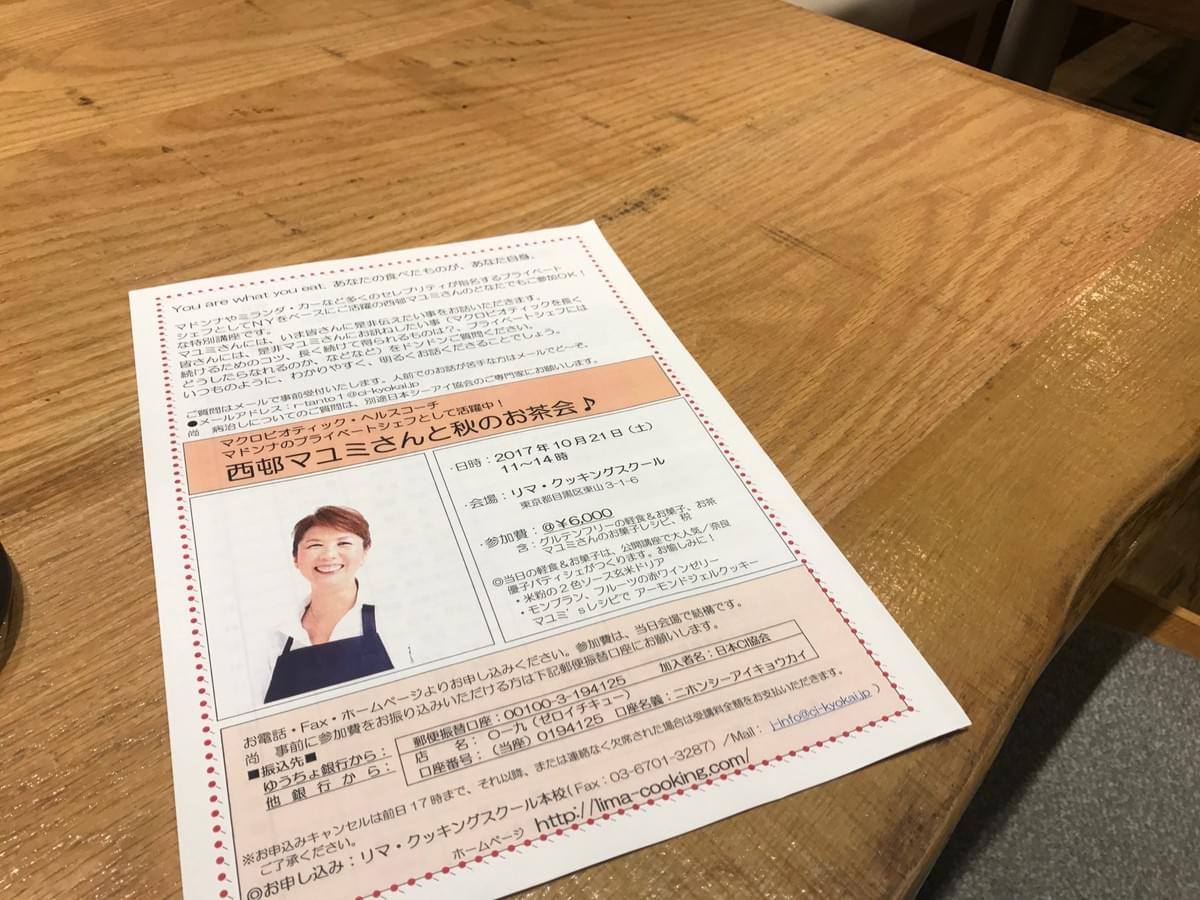 You are what you eat. あなたの食べたものが、あなた自身。
マドンナやミランダ・カーなど多くのセレブリティが指名するプライベート
シェフとしてNYをベースにご活躍の西邨マユミさんのどなたでもご参加OK！
な特別講座です。
マユミさんには、いま皆さんに是非伝えたい事をお話いただきます。
皆さんには、是非マユミさんにお訊ねしたい事（マクロビオティックを長く
続けるためのコツ、長く続けて得られるものは？、プライベートシェフには
どうしたらなれるのか、などなど）をドンドンご質問ください。
いつものように、わかりやすく、明るくお話くださることでしょう。
ご質問はメールで事前受付いたします。人前でのお話が苦手な方はメールでど～ぞ。
●メールアドレス：r-tanto1@ci-kyokai.jp
尚 病治しについてのご質問は、別途日本シーアイ協会のご専門家にお願いします。
マクロビオティック・ヘルスコーチ
マドンナのプライベートシェフとして活躍中！
西邨マユミさんと秋のお茶会♪
・日時：2017年10月21日（土）
11～14時
・会場：リマ・クッキングスクール
東京都目黒区東山3-1-6
・参加費：@￥6,000
含：グルテンフリーの軽食&お菓子、お茶
マユミさんのお菓子レシピ、税
◎当日の軽食&お菓子は、公開講座で大人気／奈良
優子パティシェがつくります。お愉しみに！
・米粉の2色ソース玄米ドリア
・モンブラン、フルーツの赤ワインゼリー
マユミ'sレシピで アーモンドジェルクッキー
お電話・Fax・ホームページよりお申し込みください。参加費は、当日会場で結構です。
尚 事前に参加費をお振り込みいただける方は下記郵便振替口座にお願いします。
■振込先■
ゆうちょ銀行から： 郵便振替口座：00100-3-194125 加入者名：日本CI協会
他銀行から： 店名：〇一九（ゼロイチキュー）
口座番号：（当座）0194125 口座名義：ニホンシーアイキョウカイ
※お申込みキャンセルは前日17時まで、それ以降、または連絡なく欠席された場合は受講料全額をお支払いただきます。
ご了承ください。
◎お申し込み：リマ・クッキングスクール本校（Fax：03-6701-3287）/Mail：i-info@ci-kyokai.jp）
ホームページ http://lima-cooking.com/